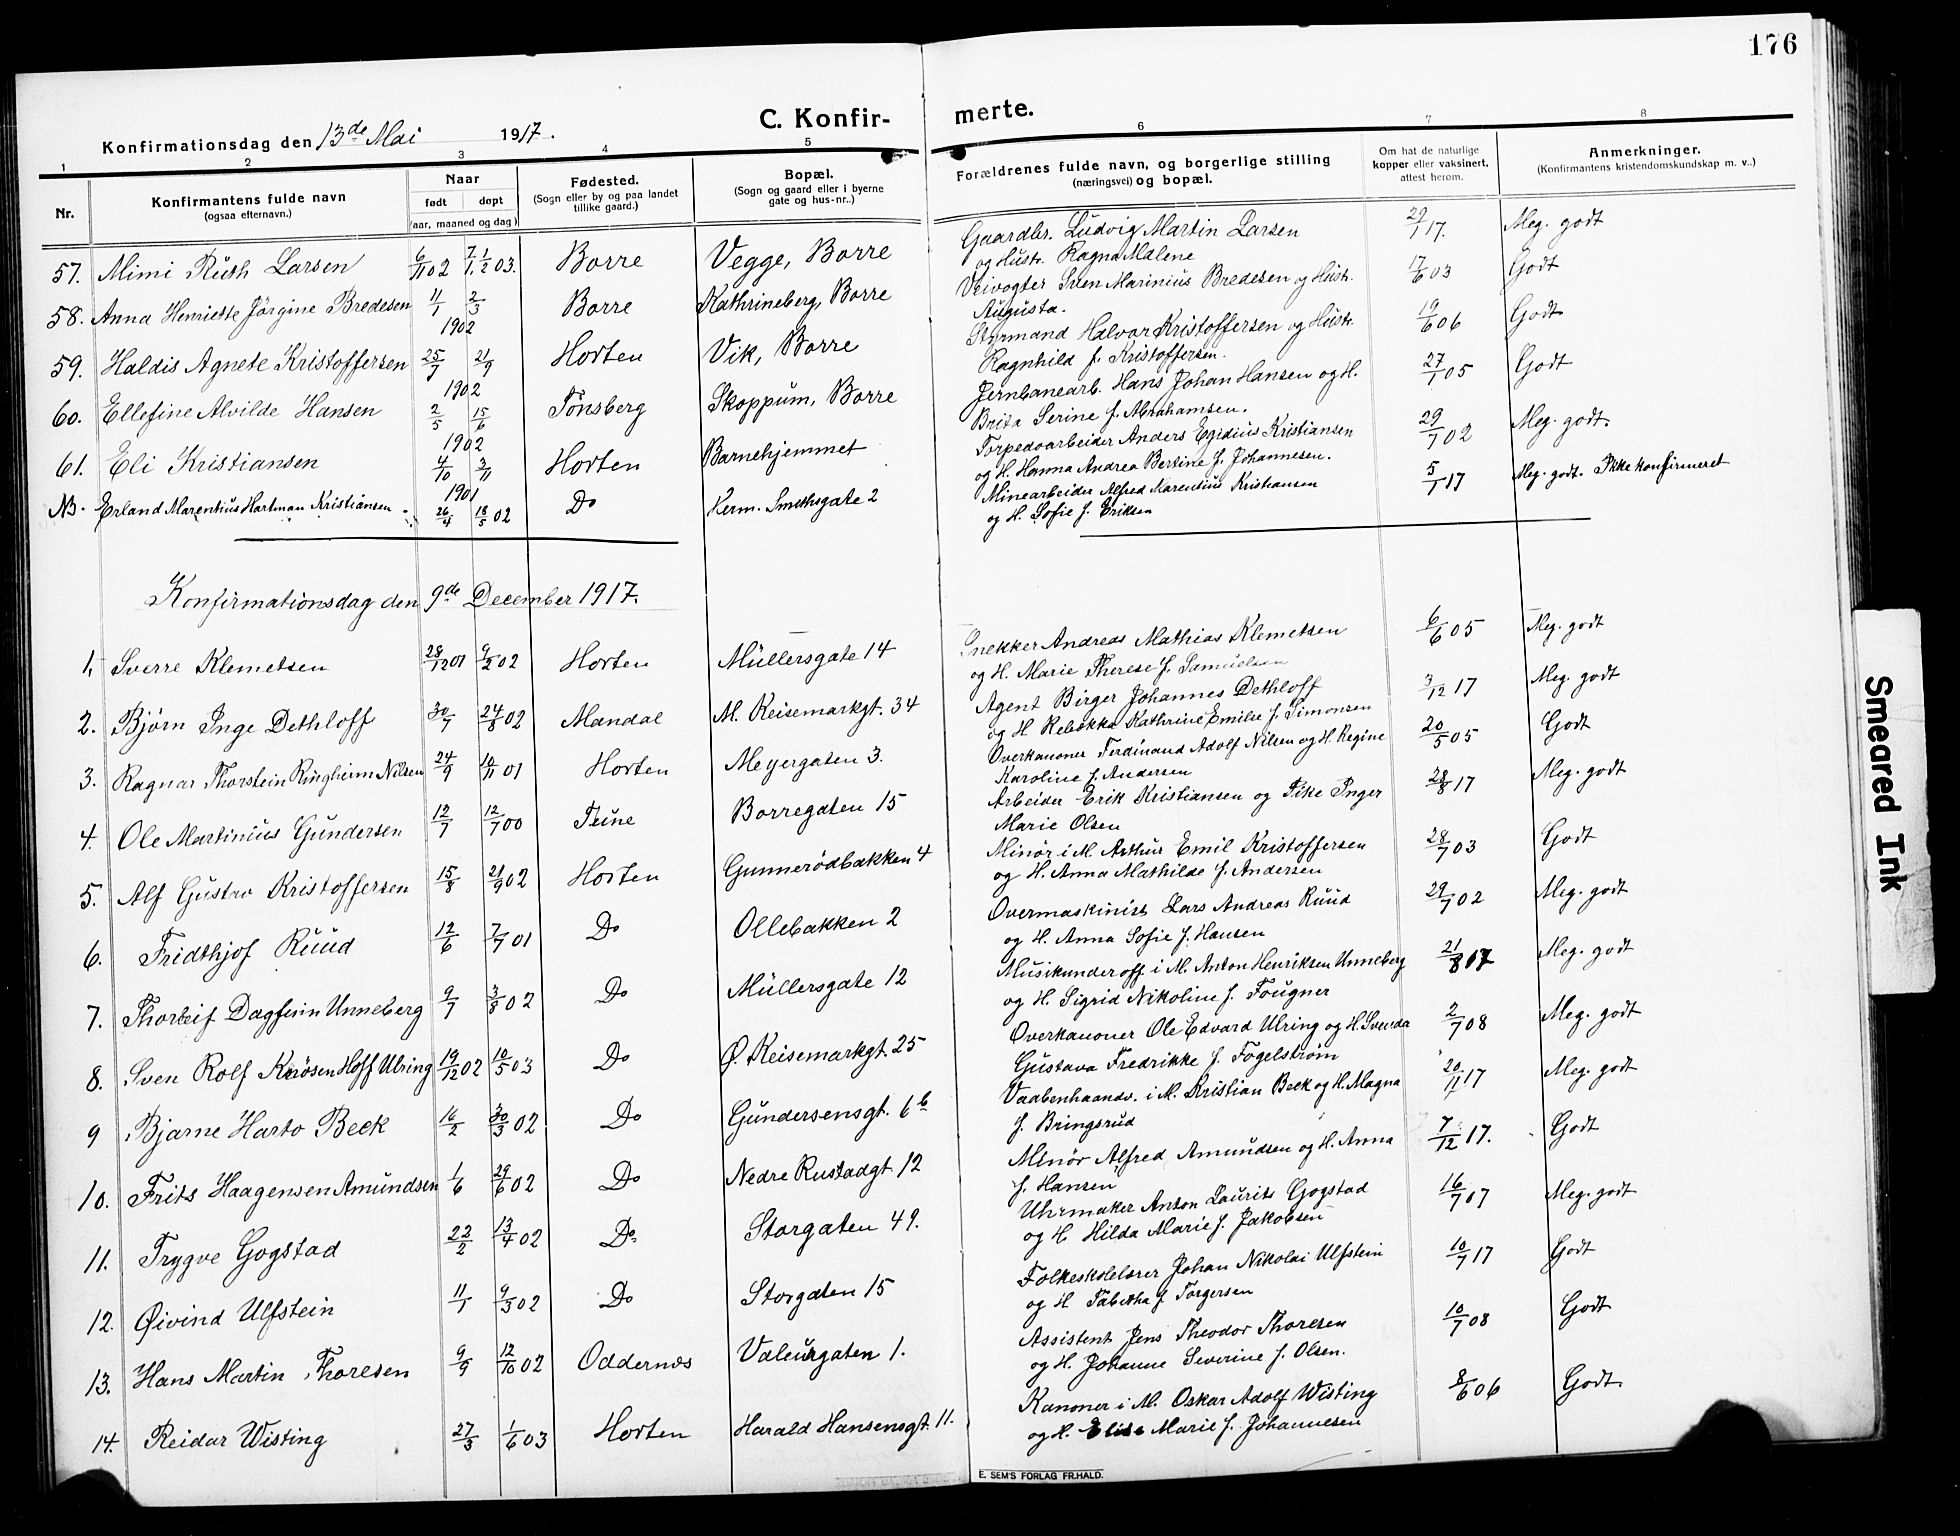 176
Konfirmationsdag den 13de Mai 1917.
C. Konfirmerte.
1 2 3 4 5 6 7 8
Nr.
Konfirmantens fulde navn
(ogsaa efternavn.)
Naar
født døpt
(aar, maaned og dag)
Fødested.
(Sogn eller by og paa landet
tillike gaard.)
Bopæl.
(Sogn og gaard eller i byerne
gate og hus-nr..)
Forældrenes fulde navn, og borgerlige stilling
(næringsvei) og bopæl.
Om hat de naturlige
kopper eller vaksinert,
attest herom.
Anmerkninger.
(Konfirmantens kristendomskundskap m. v..)
57. Mimi Ruth Larsen 6/11 02 1/1 03. Borre Vegge, Borre Gaardbr. Ludvig Martin Larsen 29/1 17. Meg. godt
og Hustr. Ragna Malene
58. Anna Henriette Jörgine Bredesen 11/1 2/3 1902 Borre Kathrineberg, Borre Veivogter Sven Marinius Bredesen og Hustr. 17/6 03 Godt
Augusta.
59. Haldis Agnete Kristoffersen 25/7 21/9 1902 Horten Vik, Borre Styrmand Halvor Kristoffersen og Hustr. 19/6 06 Godt
Ragnhild f. Kristoffersen.
60. Ellefine Alvilde Hansen 2/5 15/6 1902 Tønsberg Skoppum, Borre Jernbanearb. Hans Johan Hansen og H. 27/1 05 Godt
Brita Serine f. Abrahamsen.
61. Eli Kristiansen 4/10 3/11 1901 Horten Barnehjemmet Torpedoarbeider Anders Egidius Kristiansen 29/7 02 Meg. godt.
og H. Hanna Andrea Bertine f. Johannesen.
NB. Erland Marentius Hartman Kristiansen. 26/4 18/5 02 Do Herm. Smithsgate 2 Minearbeider Alfred Marentius Kristiansen 5/1 17 Meg. godt. Ikke konfirmeret
og H. Sofie f. Eriksen
Konfirmationsdag den 9de December 1917.
1. Sverre Klemetsen 28/12 01 9/2 02 Horten Müllersgate 14 Snekker Andreas Mathias Klemetsen 6/6 05 Meg. godt
og H. Marie Therese f. Samuelsen
2. Bjørn Inge Dethloff 30/7 24/8 02 Mandal M. Keisemarkgt. 34 Agent Birger Johannes Dethloff 3/12 17 Meg. godt
og H Rebekka Kathrine Emilie f. Simonsen
3. Ragnar Thorstein Ringheim Nilsen 24/9 10/11 01 Horten Meyergaten 3. Overkanoner Ferdinand Adolf Nilsen og H. Regine 20/5 05 Godt
Karoline f. Andersen
4. Ole Martinius Gundersen 12/7 12/7 00 Tune Borregaten 15 Arbeider Erik Kristiansen og Pike Inger 28/8 17 Meg. godt
Marie Olsen
5. Alf Gustav Kristoffersen 15/8 21/9 02 Horten Gunnerödbakken 4 Minör i M. Arthur Emil Kristoffersen 28/7 03 Godt
og H. Anna Mathilde f. Andersen
6. Fridthjof Ruud 12/6 7/7 01 Do Ollebakken 2 Overmaskinist Lars Andreas Ruud 29/7 02 Meg. godt
og H. Anna Sofie f. Hansen
7. Thorleif Dagfinn Unneberg 9/7 3/8 02 Do Müllersgate 12 Musikunderoff. i M. Anton Henriksen Unneberg 21/8 17 Meg. godt
og H. Sigrid Nikoline f. Fougner
8. Sven Rolf Knösen Hoff Ulring 19/12 02 10/5 03 Do Ø. Keisemarkgt. 25 Overkanoner Ole Edvard Ulring og H. Svenda 2/7 08 Meg. godt
Gustava Fredrikke f. Fogelstrøm
9 Bjarne Harto Beck 16/2 30/3 02 Do Gundersensgt. 6b Vaabenhaandv. i M. Kristian Beck og H. Magna 20/11 17 Meg. godt
f. Bringsrud
10. Frits Haagensen Amundsen 1/6 29/6 02 Do Nedre Rustadgt. 12 Minör Alfred Amundsen og H. Anna 7/12 17. Godt
f. Hansen
11. Trygve Gogstad 22/2 13/4 02 Do Storgaten 49. Uhrmaker Anton Laurits Gogstad 16/7 07 Meg. godt
og H Hilda Marie f. Jakobsen
12. Øivind Ulfstein 11/1 9/3 02 Do Storgaten 15 Folkeskolelærer Johan Nikolai Ulfstein 10/7 17 Godt
og H Tabitha f. Torgersen
13. Hans Martin Thoresen 9/9 12/10 02 Oddernæs Valeurgaten 1. Assistent Jens Theodor Thoresen 10/7 08 Godt
og H. Johanne Severine f. Olsen.
14. Reidar Wisting 27/3 1/6 03 Horten Harald Hansensgt. 11. Kanoner i M. Oskar Adolf Wisting 8/6 06 Godt.
og H. Elise Marie f. Johannesen
E. SEM'S FORLAG FR.HALD.
Smeared Ink